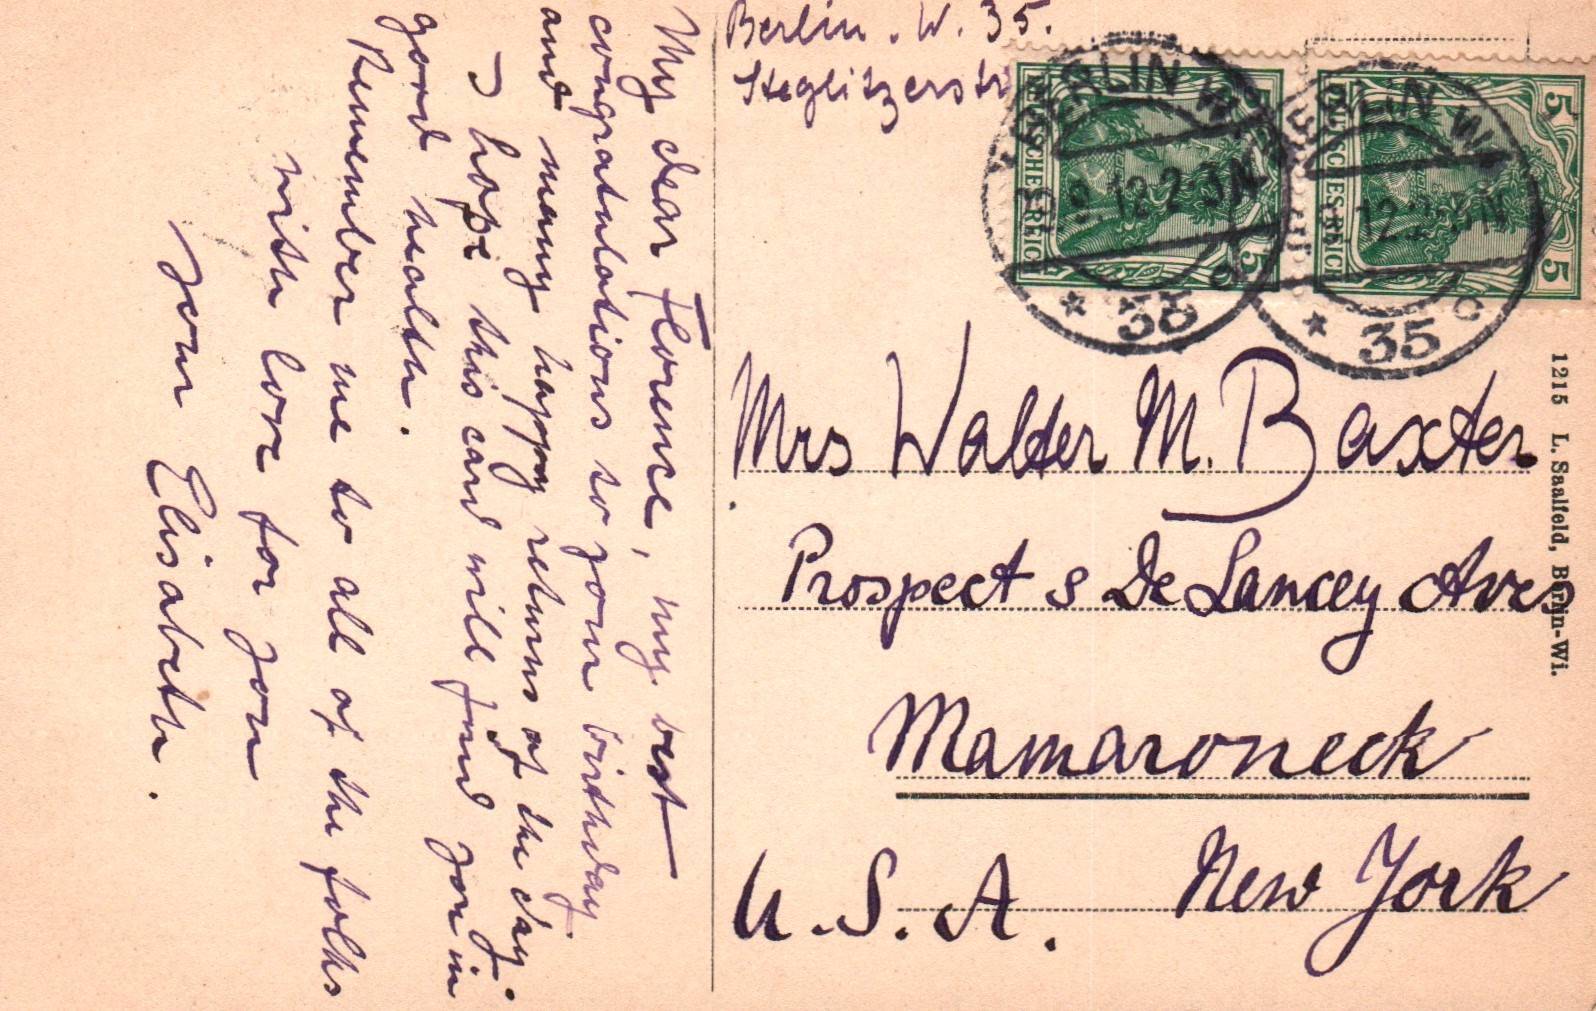 Berlin. W. 35.
Steglitzerstr
My dear Florence, my best
congratulations to your birthday
and many happy returns of the day.
I hope this card will find you in
good health.
Remember me to all of the folks
with love for you
your Elisabeth.
Mrs Walter M. Baxter
Prospect & De Lancey Aves
Mamaroneck
New York
U.S.A.
DEUTSCHES REICH
5
5
DEUTSCHES REICH
5
5
BERLIN W.
12 2-3N
* 35 c
BERLIN W.
12 2-3N
* 35 c
1215 L. Saalfeld, Berlin-Wi.